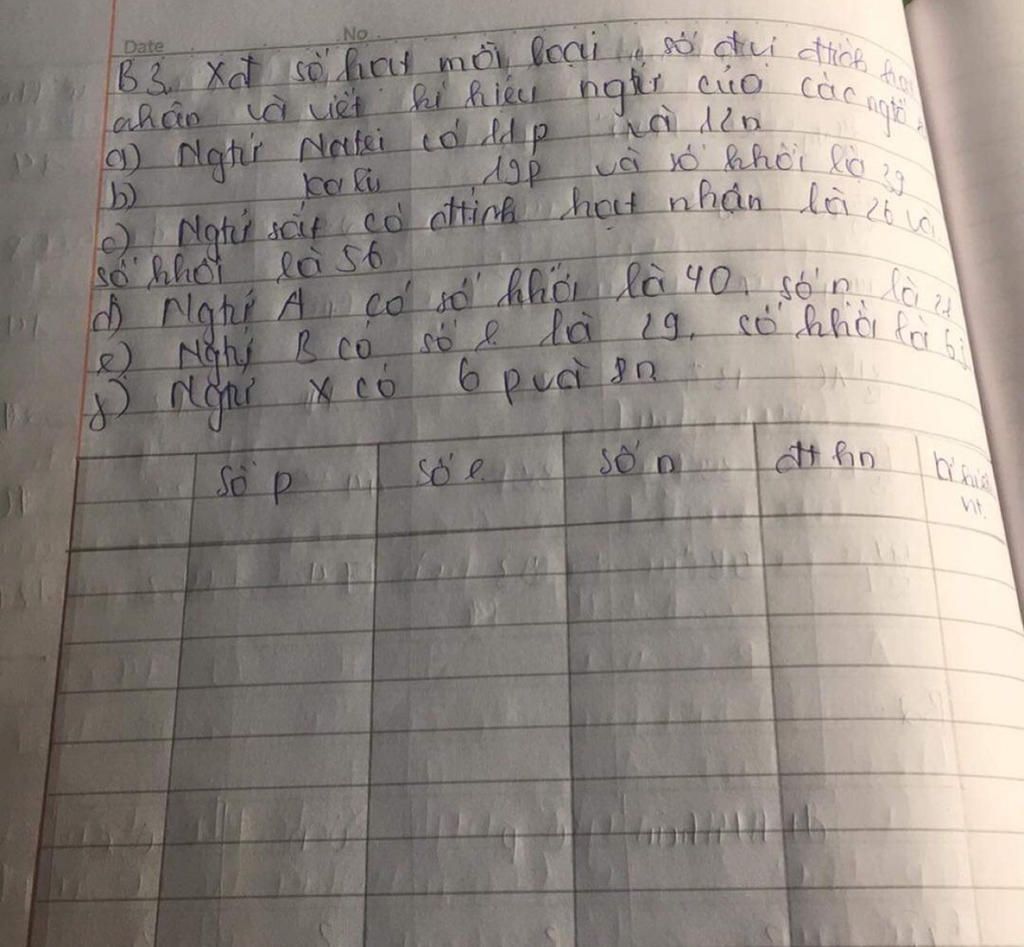 Date No
B3. Xđ số hạt mỗi loại, số đvi đtích
nhân và viết kí hiệu ngtử của các
a) Ngtử Natri có 11p và 12n
b) kali 19p và số khối là 39
c) Ngtử sắt có đtích hạt nhân là 26
số khối là 56
d) Ngtử A có số khối là 40, số n là
e) Ngtử B có số e là 29, số khối là
f) Ngtử X có 6p và 8n
số p số e số n đt hn kí hiệu
nt.